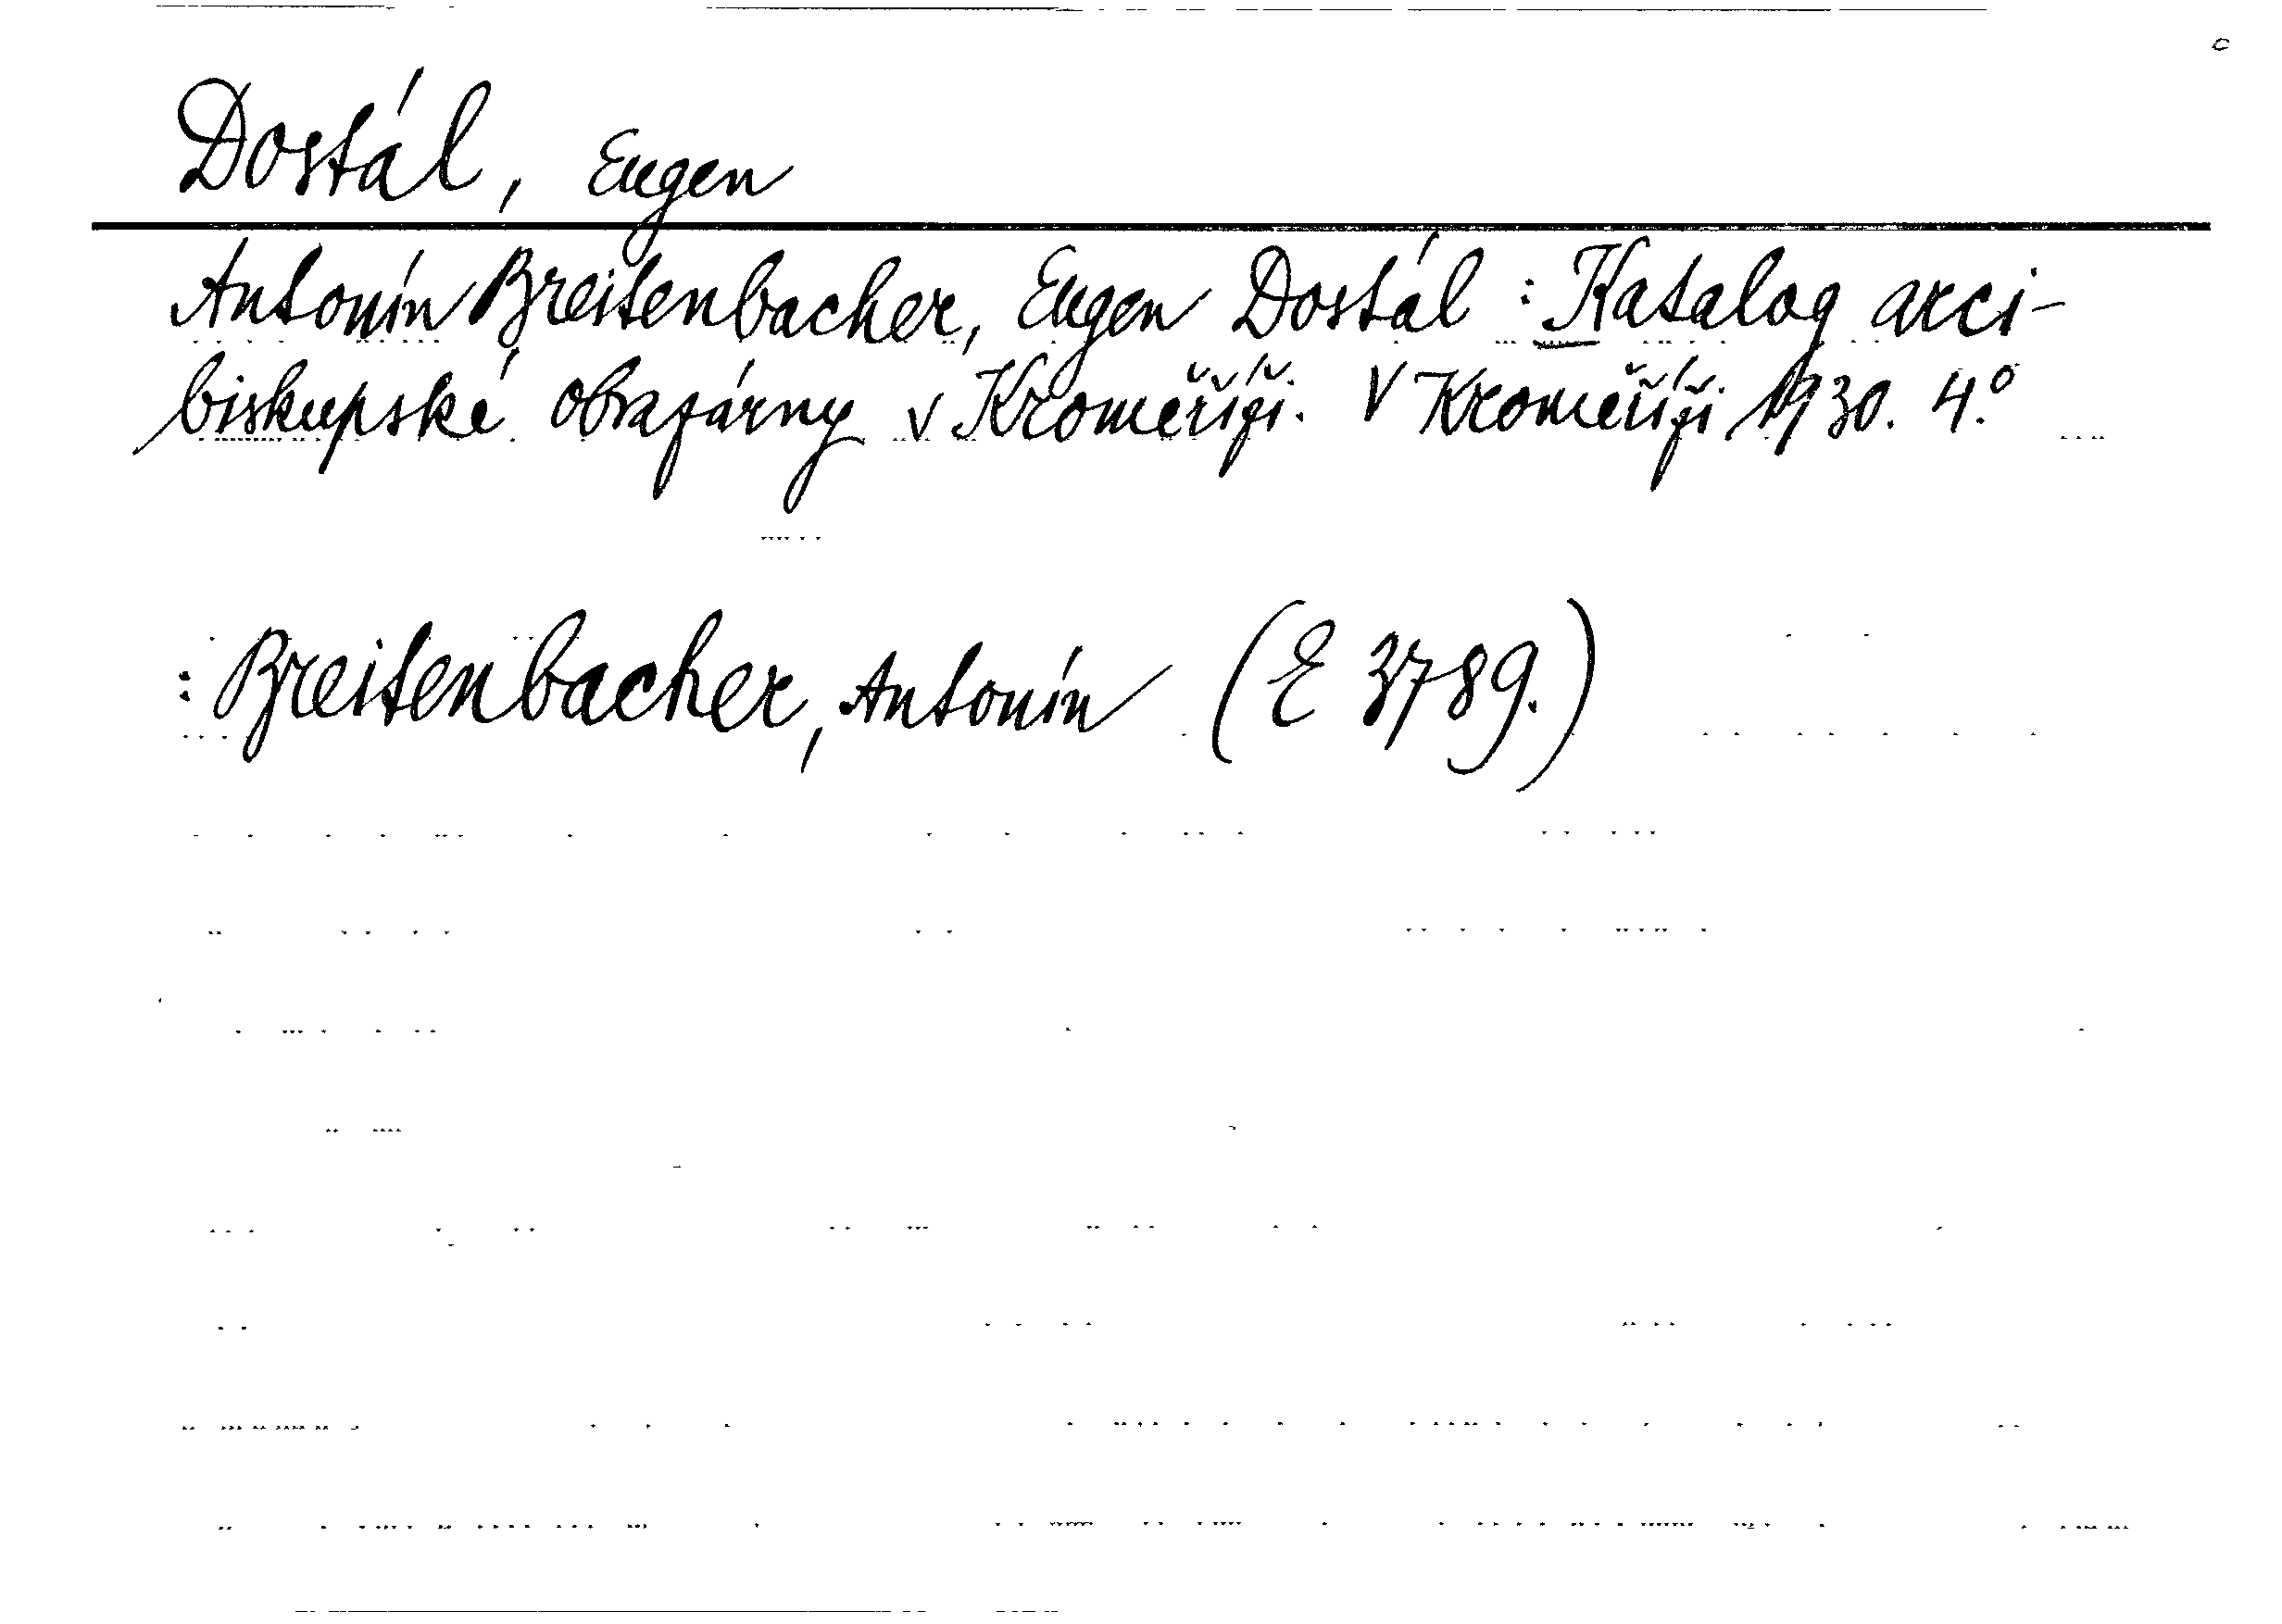 Dostál, Eugen
Antonín Breitenbacher, Eugen Dostál : Katalog arci-
biskupské obrazárny v Kroměříži. V Kroměříži 1930. 4.°
: Breitenbacher, Antonín (E 3789.)